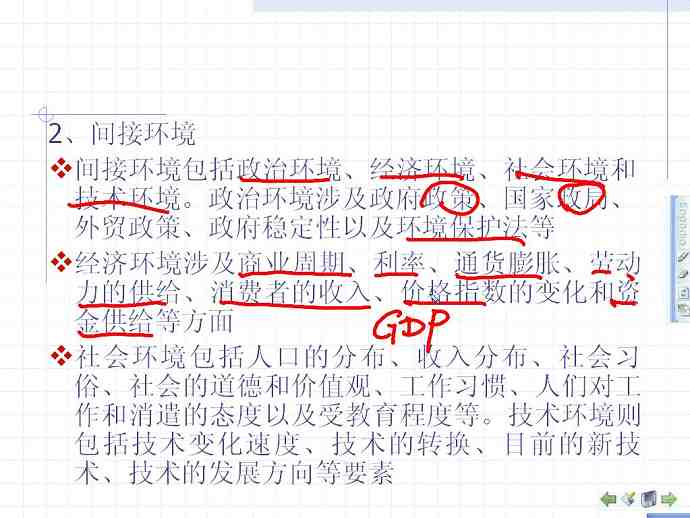 2、间接环境
❖间接环境包括政治环境、经济环境、社会环境和
技术环境。政治环境涉及政府政策、国家政局、
外贸政策、政府稳定性以及环境保护法等
❖经济环境涉及商业周期、利率、通货膨胀、劳动
力的供给、消费者的收入、价格指数的变化和资
金供给等方面
GDP
❖社会环境包括人口的分布、收入分布、社会习
俗、社会的道德和价值观、工作习惯、人们对工
作和消遣的态度以及受教育程度等。技术环境则
包括技术变化速度、技术的转换、目前的新技
术、技术的发展方向等要素